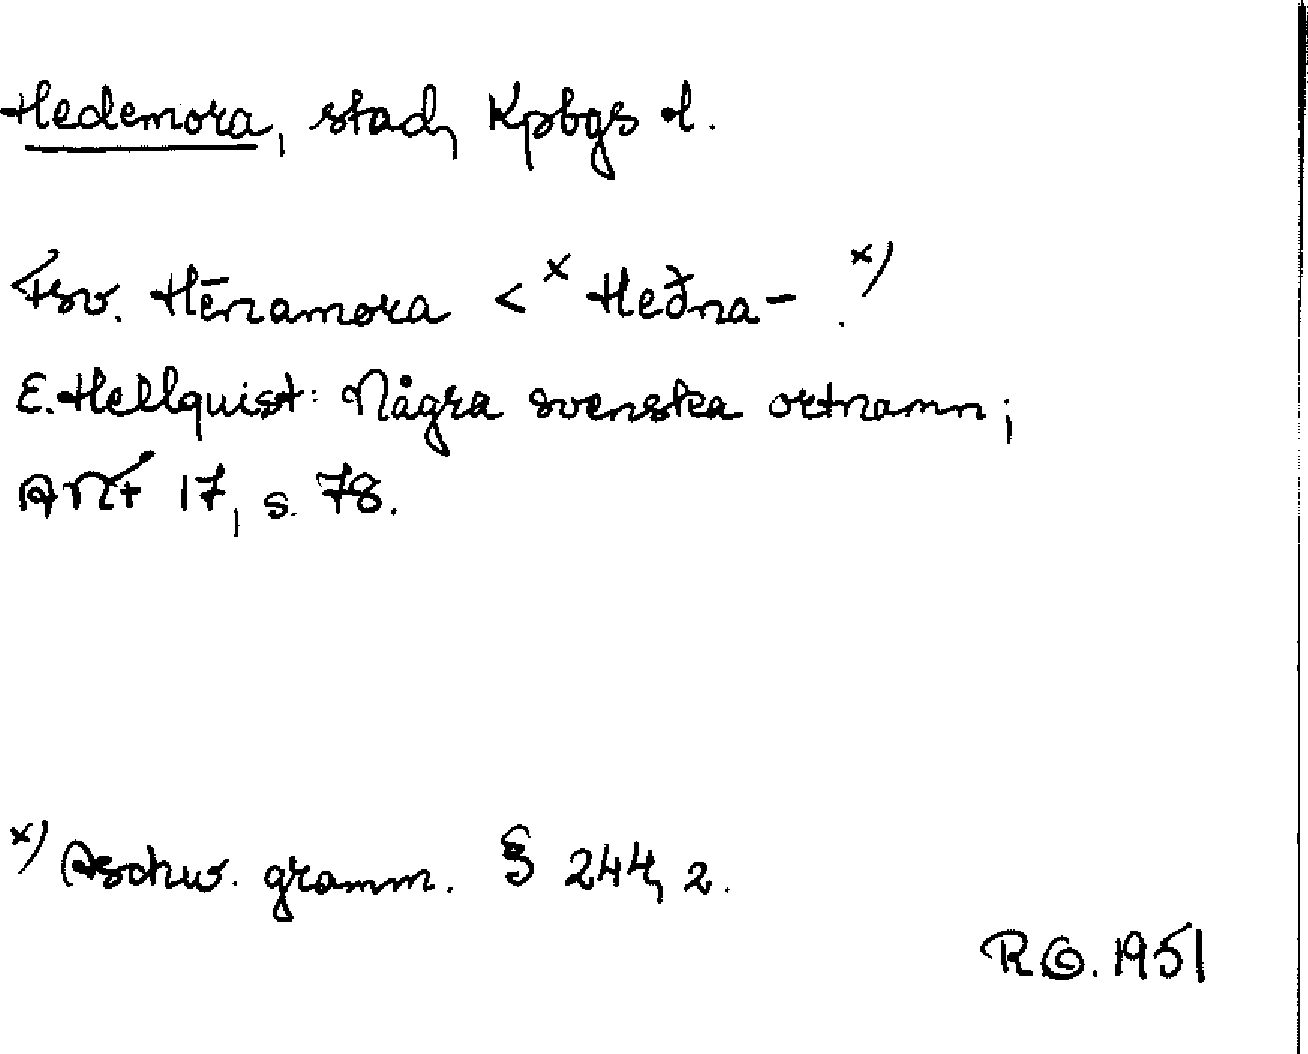 Hedemora, stad, Kpbgs l.
Fsv. Hēnamora < ˣ Heðna- . ˣ⁾
E. Hellquist: Några svenska ortnamn;
ANF 17, s. 78.
ˣ⁾ Aschw. gramm. § 244, 2.
RG. 1951